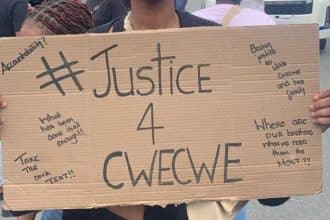 Accountability?
#JUSTICE
4
CWECWE
What
has been
done isn't
enough!!
TAKE
THE
DNA TEST!!
Being
justice
to
little
cwecwe
and her
family
WHERE ARE
OUR
when we need
them the
MOST??